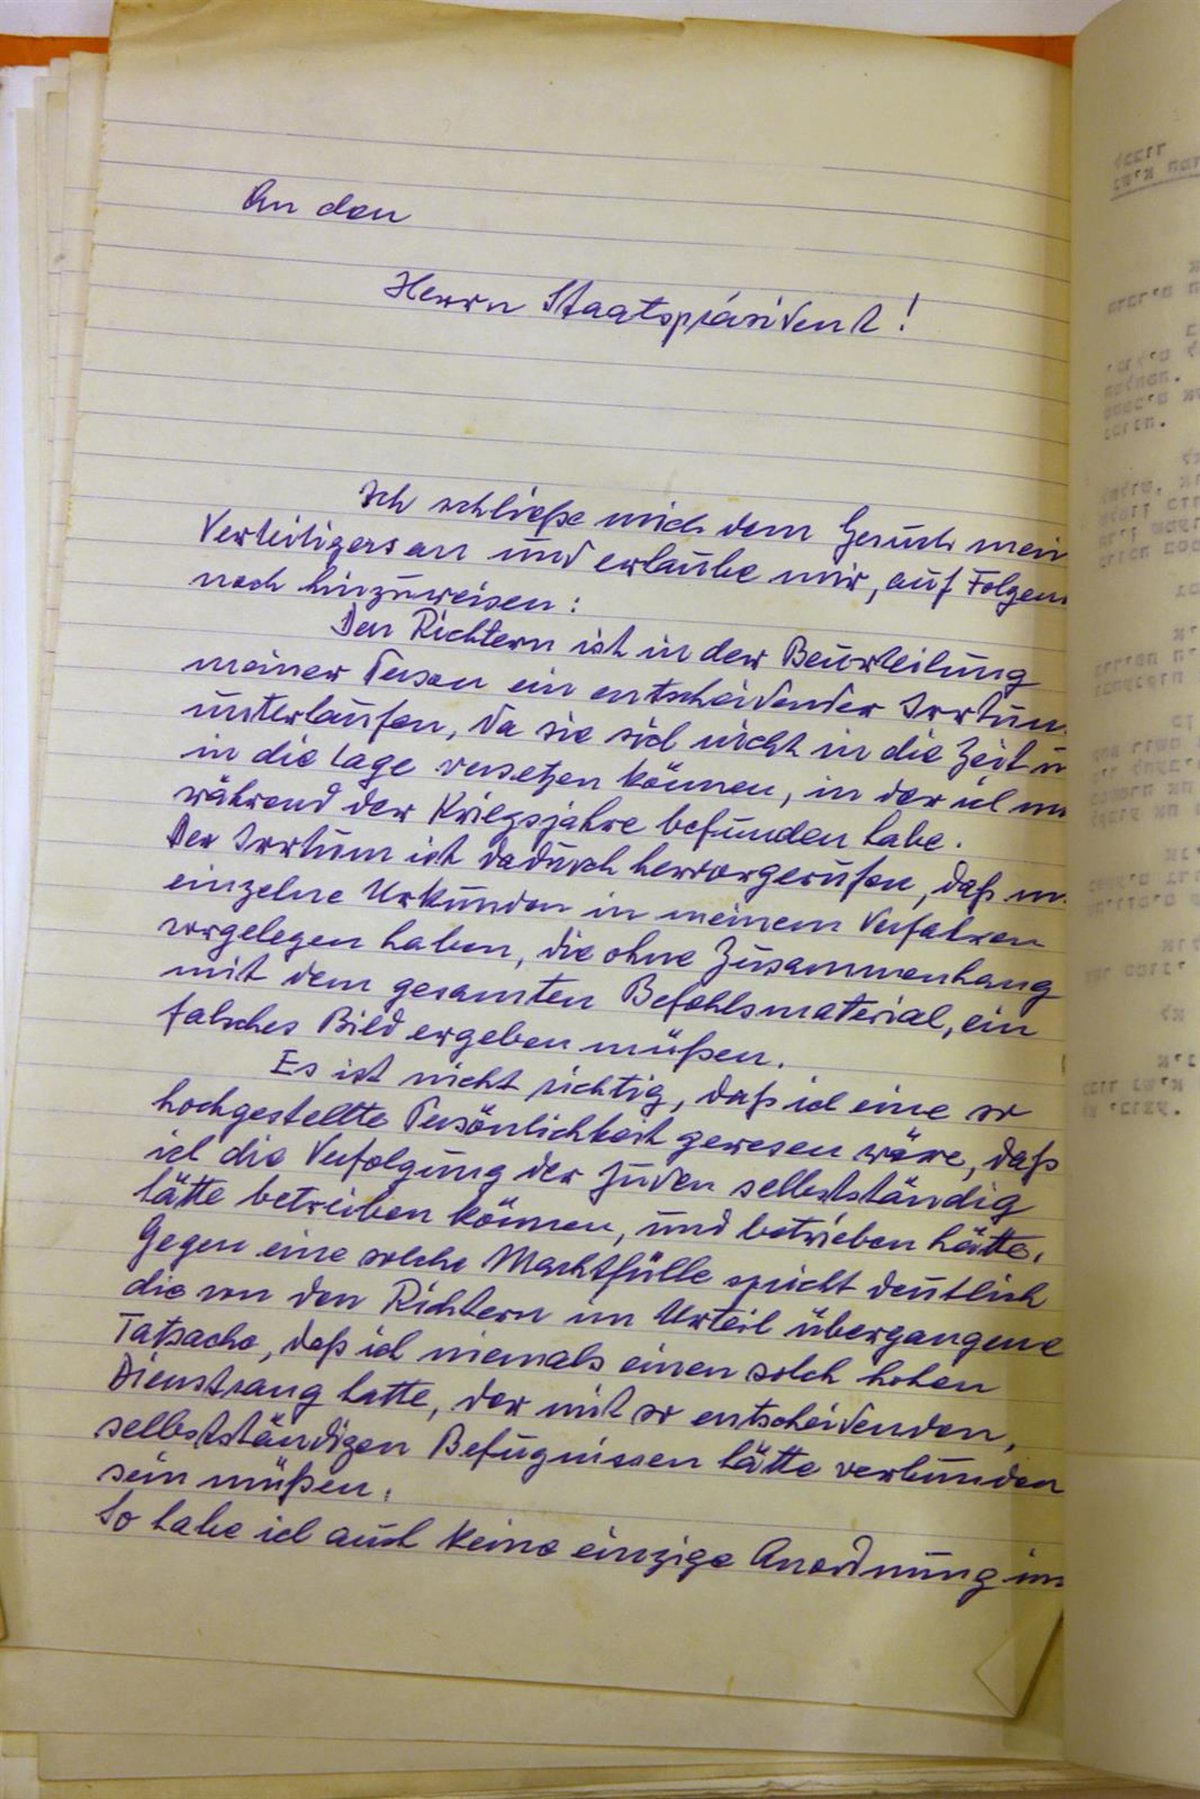 An den
Herrn Staatspräsident!
Ich schließe mich dem Gesuch mein
Verteidigers an und erlaube mir, auf Folgen
noch hinzuweisen:
Den Richtern ist in der Beurteilung
meiner Person ein entscheidender Irrtum
unterlaufen, da sie sich nicht in die Zeit u
in die Lage versetzen können, in der ich
während der Kriegsjahre befunden habe.
Der Irrtum ist dadurch hervorgerufen, daß
einzelne Urkunden in meinem Verfahren
vorgelegen haben, die ohne Zusammenhang
mit dem gesamten Befehlsmaterial, ein
falsches Bild ergeben müßen.
Es ist nicht richtig, daß ich eine so
hochgestellte Persönlichkeit gewesen wäre, daß
ich die Verfolgung der Juden selbstständig
hätte betreiben können, und betrieben hätte.
Gegen eine solche Machtfülle spricht deutlich
die von den Richtern im Urteil übergangene
Tatsache, daß ich niemals einen solch hohen
Dienstrang hatte, der mit so entscheidenden,
selbstständigen Befugnissen hätte verbunden
sein müßen.
So habe ich auch keine einzige Anordnung im